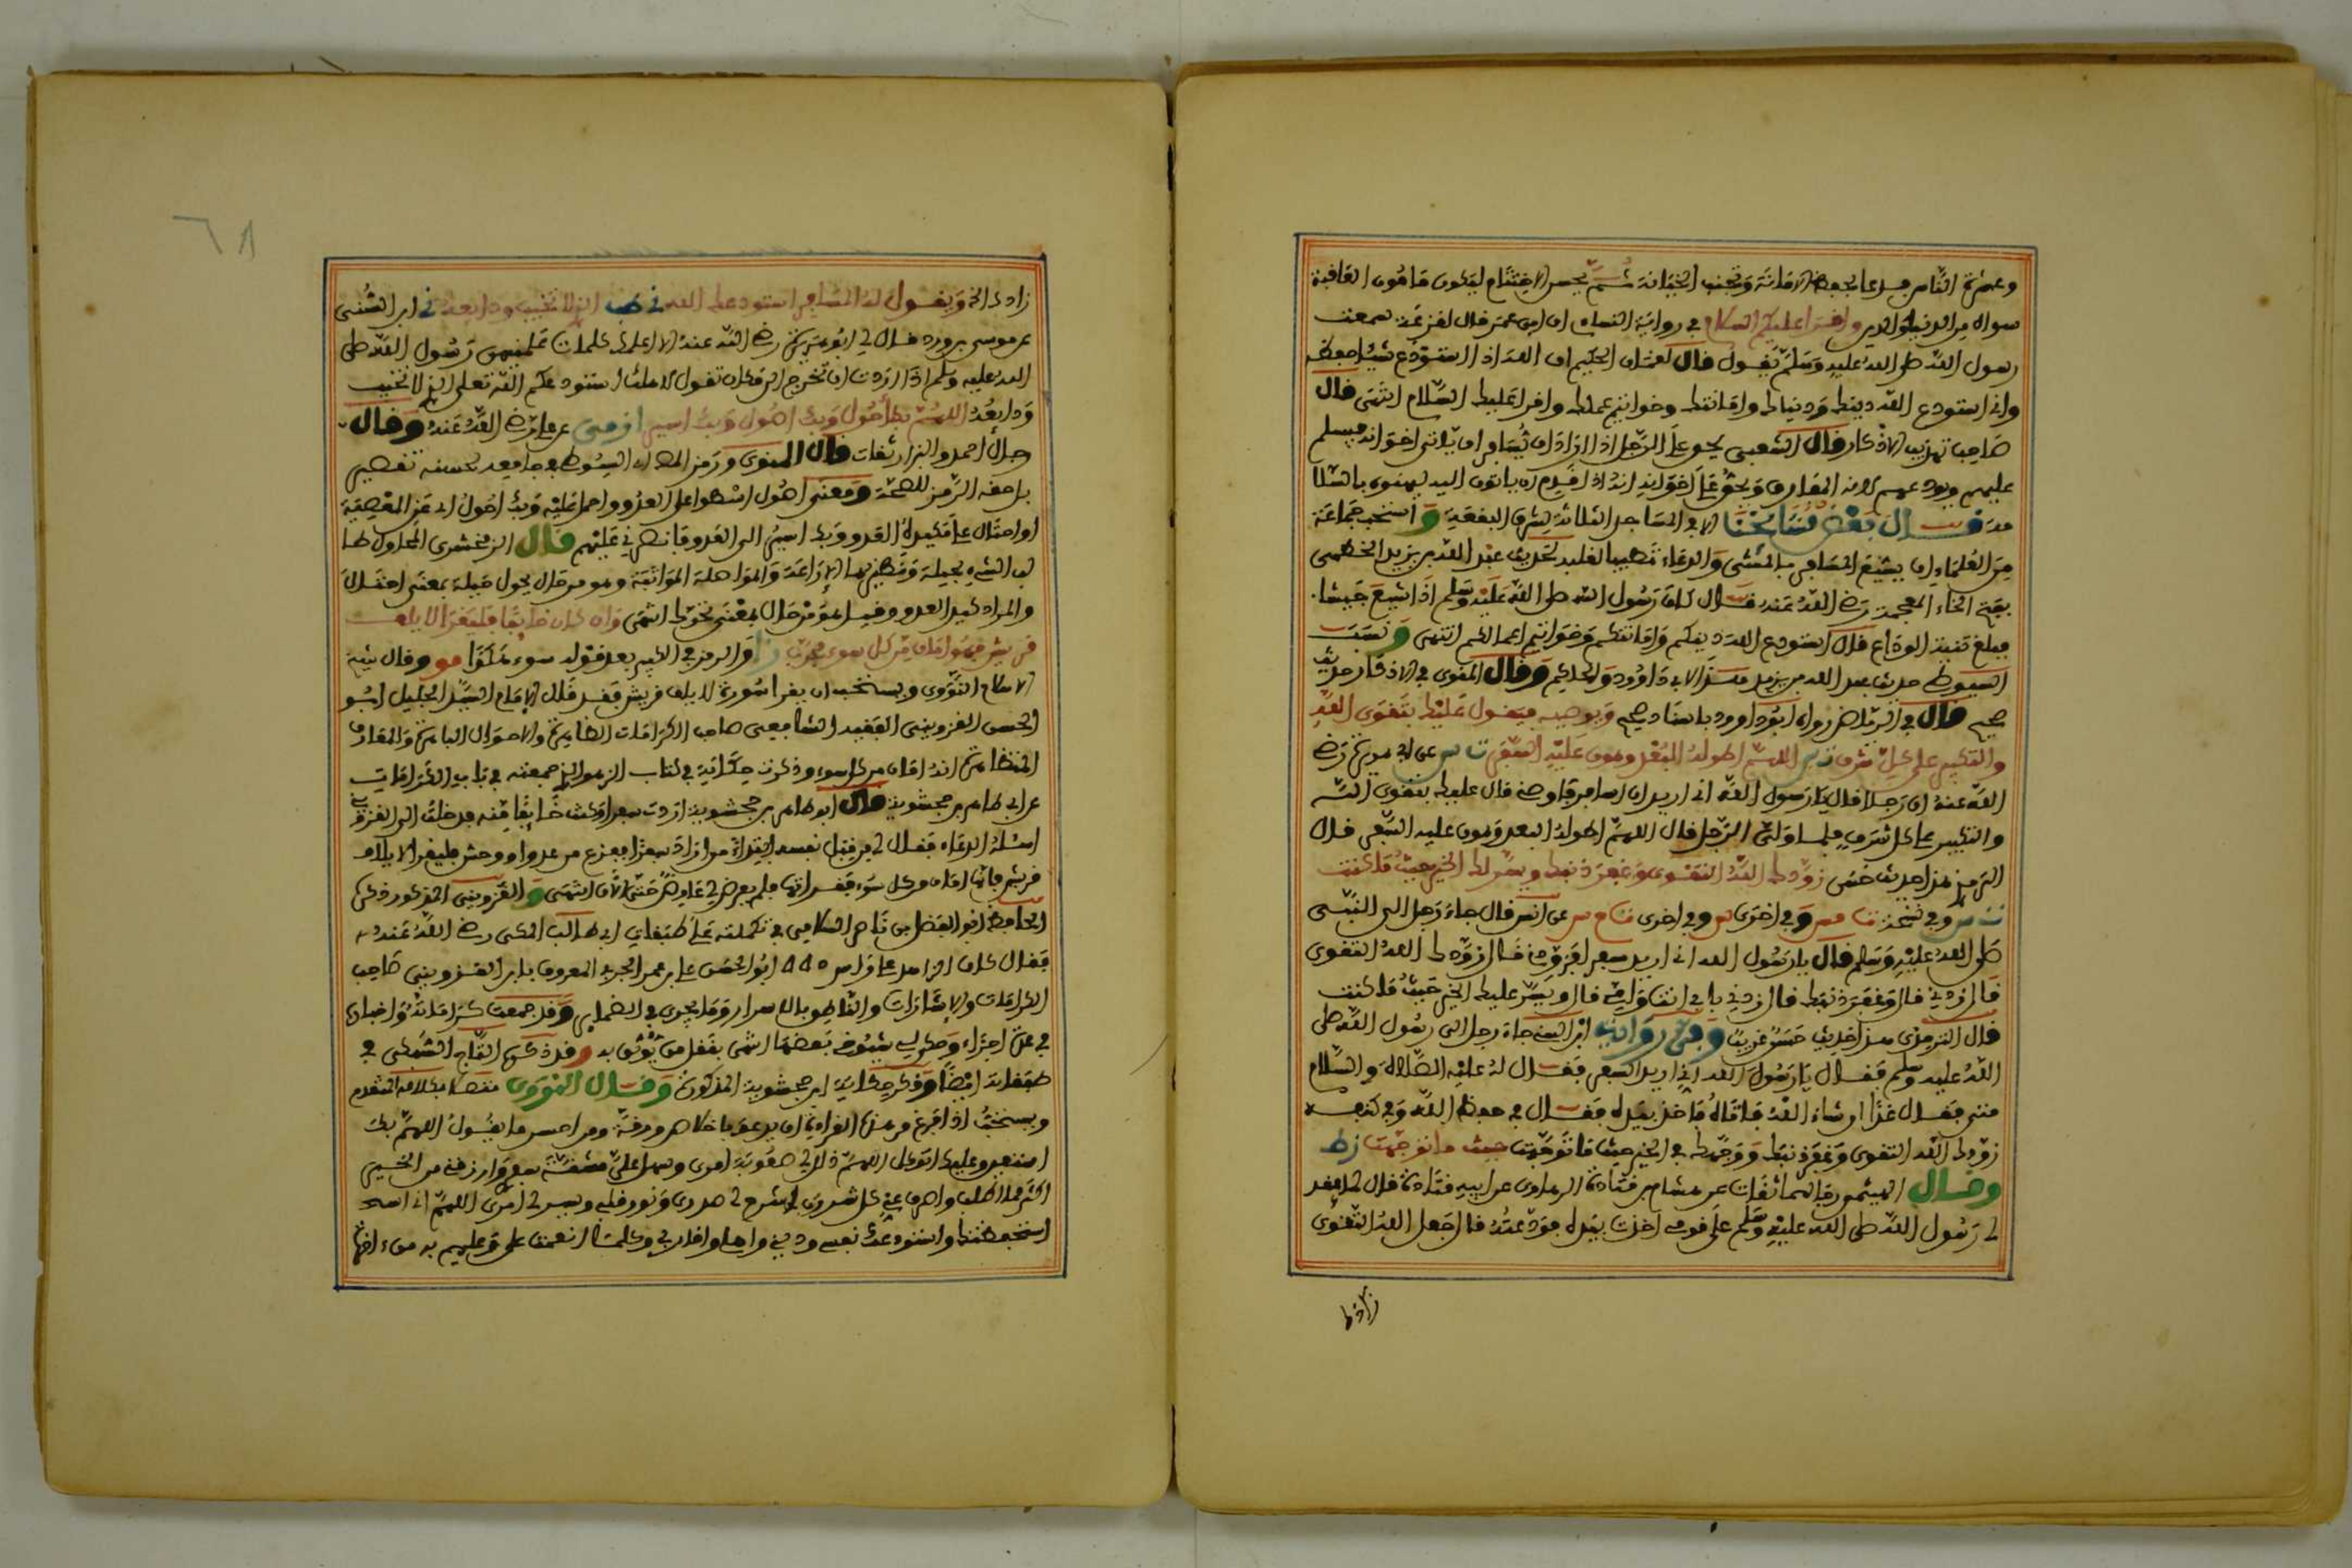 وعشرة الناس فدعا بحفظ الامانة وتجنب الخيانة ثم بحسن الاختتام ليكون مامون العاقبة
سواه من الدنيا والدين واقرا عليكم السلام في رواية النساي ان ابن عمر قال لقزعة سمعت
رسول الله صلى الله عليه وسلم يقول قال لقمان الحكيم ان الله اذا استودع شيئا حفظه
واني استودع الله دينك ودنياك وامانتك وخواتيم عملك واقرا عليك السلام انتهى قال
صاحب تهذيب الاذكار قال الشعبي يحق على الرجل اذا اراد ان يسافر ان ياتي اخوانه فيسلم
عليهم ويودعهم لانه المفارق ويحق على اخوانه انه اذا قدم ان ياتوا اليه ليهنوه بالسلا
مة قال بعض مشايخنا الا المساجد الثلاثة لشرف البقعة و استحب جماعة
من العلماء ان يشيع المسافر بالمشي والدعاء تطييبا لقلبه لحديث عبد الله بن يزيد الخطمي
بفتح الخاء المعجمة رضي الله عنه قال كان رسول الله صلى الله عليه وسلم اذا شيع جيشا
فبلغ ثنية الوداع قال استودع الله دينكم وامانتكم وخواتيم اعمالكم انتهى و نسب
السيوطي حديث عبد الله بن يزيد هذا لابي داوود والحاكم وقال النووي في الاذكار حديث
صحيح قال في الرياض رواه ابو داوود باسناد صحيح ويوصيه فيقول عليك بتقوى الله
والتكبير على كل شرف ت س اللهم اطو له البعد وهون عليه السفر ت س عن ابي هريرة رضي
الله عنه ان رجلا قال يا رسول الله اني اريد ان اسافر فاوصني قال عليك بتقوى الله
والتكبير على كل شرف فلما ولى الرجل قال اللهم اطو له البعد وهون عليه السفر قال
الترمذي هذا حديث حسن زودك الله التقوى وغفر ذنبك ويسر لك الخير حيث ما كنت
ت س وفي نسخة وفي اخرى وفي اخرى عن انس قال جاء رجل الى النبي
صلى الله عليه وسلم قال يا رسول الله اني اريد سفرا فزودني فقال زودك الله التقوى
قال زدني قال وغفر ذنبك قال زدني بابي انت وامي قال ويسر عليك الخير حيث ما كنت
قال الترمذي هذا حديث حسن غريب وفي رواية ابن السني جاء رجل الى رسول الله صلى
الله عليه وسلم فقال يا رسول الله اني اريد السفر فقال له عليه الصلاة والسلام
متى فقال غدا ان شاء الله فاتاه فاخذ بيده فقال في حفظ الله وفي كنفه
زودك الله التقوى وغفر ذنبك ووجهك في الخير حيث ما توجهت حيث ما توجهت
وقال الهيثمي رجالهما ثقات عن هشام بن قتادة الرهاوي عن ابيه قتادة قال لما عقد
لي رسول الله صلى الله عليه وسلم على قومي اخذت بيده فودعته قال جعل الله التقوى
زادك
زادك الخ ويقول له المسافر استودعك الله الذي لا تخيب ودايعه ابن السني
عن موسى بن وردان قال لي ابو هريرة رضي الله عنه الا اعلمك كلمات علمنيهن رسول الله صلى
الله عليه وسلم اذا اردت ان تخرج الى مكان تقول لاهلك استودعكم الله تعلى الذي لا تخيب
ودايعه اللهم بك اصول وبك احول وبك اسير عن علي رضي الله عنه وقال
رجال احمد والبزار ثقات قال المناوي ورمز السيوطي في جامعه لحسنه تقصير
بل حقه الرمز للصحة ومعنى اصول اسطوا على العدو واحمل عليه وبك احول اي عن المعصية
او احتال على مكيدة العدو وبك اسير الى العدو فانصرني عليهم قال الزمخشري المحاولة طلب
الشيء بحيلة
والمراد كيد العدو وقيل هو من حال بمعنى تحرك انتهى وان كان خايفا فليقرا لايلاف
قريش فهو امان من كل سوء مجرب و الرمز في الكبير بعد قوله سوء هكذا مو وقال شيخ
الاسلام النووي ويستحب ان يقرا سورة لايلاف قريش فقد قال الامام السيد الجليل ابو
الحسن القزويني الفقيه الشافعي صاحب الكرامات الظاهرة والاحوال الباهرة والمعارف
المتظاهرة انه امان من كل سوء وذكرت حكايته في كتاب الزهد الذي جمعته في باب الكرامات
عن ابي طاهر بن جحشويه قال ابو طاهر بن جحشويه اردت سفرا وكنت خايفا منه فدخلت الى القزويني
اسئله الدعاء فقال لي من قبل نفسه ابتداء من اراد سفرا ففزع من عدو او وحش فليقرا لايلاف
قريش فانها امان من كل سوء فقراتها فلم يعرض لي عارض حتى الان انتهى و القزويني المذكور ذكره
الحافظ ابو الفضل بن ناصر السلامي في تكملته على طبقات ابي طالب المكي رضي الله عنه
فقال كان الزاهد ابو الحسن علي بن عمر الحربي المعروف بابن القزويني صاحب
الكرامات والاشارات والناطق بالاسرار وما يجري في الضماير وقد جمعت كراماته واخباره
في عدة اجزاء وحكى لي شيوخي بعضها انتهى بنقل من يوثق به وقد ذكره التاج السبكي في
طبقاته ايضا وذكر حكاية ابن جحشويه المذكورة وقال النووي متصلا بكلامه المتقدم
ويستحب اذا فرغ من هذه القراءة ان يدعو باخلاص ورقة ومن احسن ما يقول اللهم بك
استعين وعليك اتوكل اللهم ذلل لي صعوبة امري وسهل علي مشقة سفري وارزقني من الخير
اكثر مما اطلب واصرف عني كل شر رب اشرح لي صدري ونور قلبي ويسر لي امري اللهم اني است
استحفظك واستودعك نفسي وديني واهلي واقاربي وكل ما انعمت علي وعليهم به من اخرة